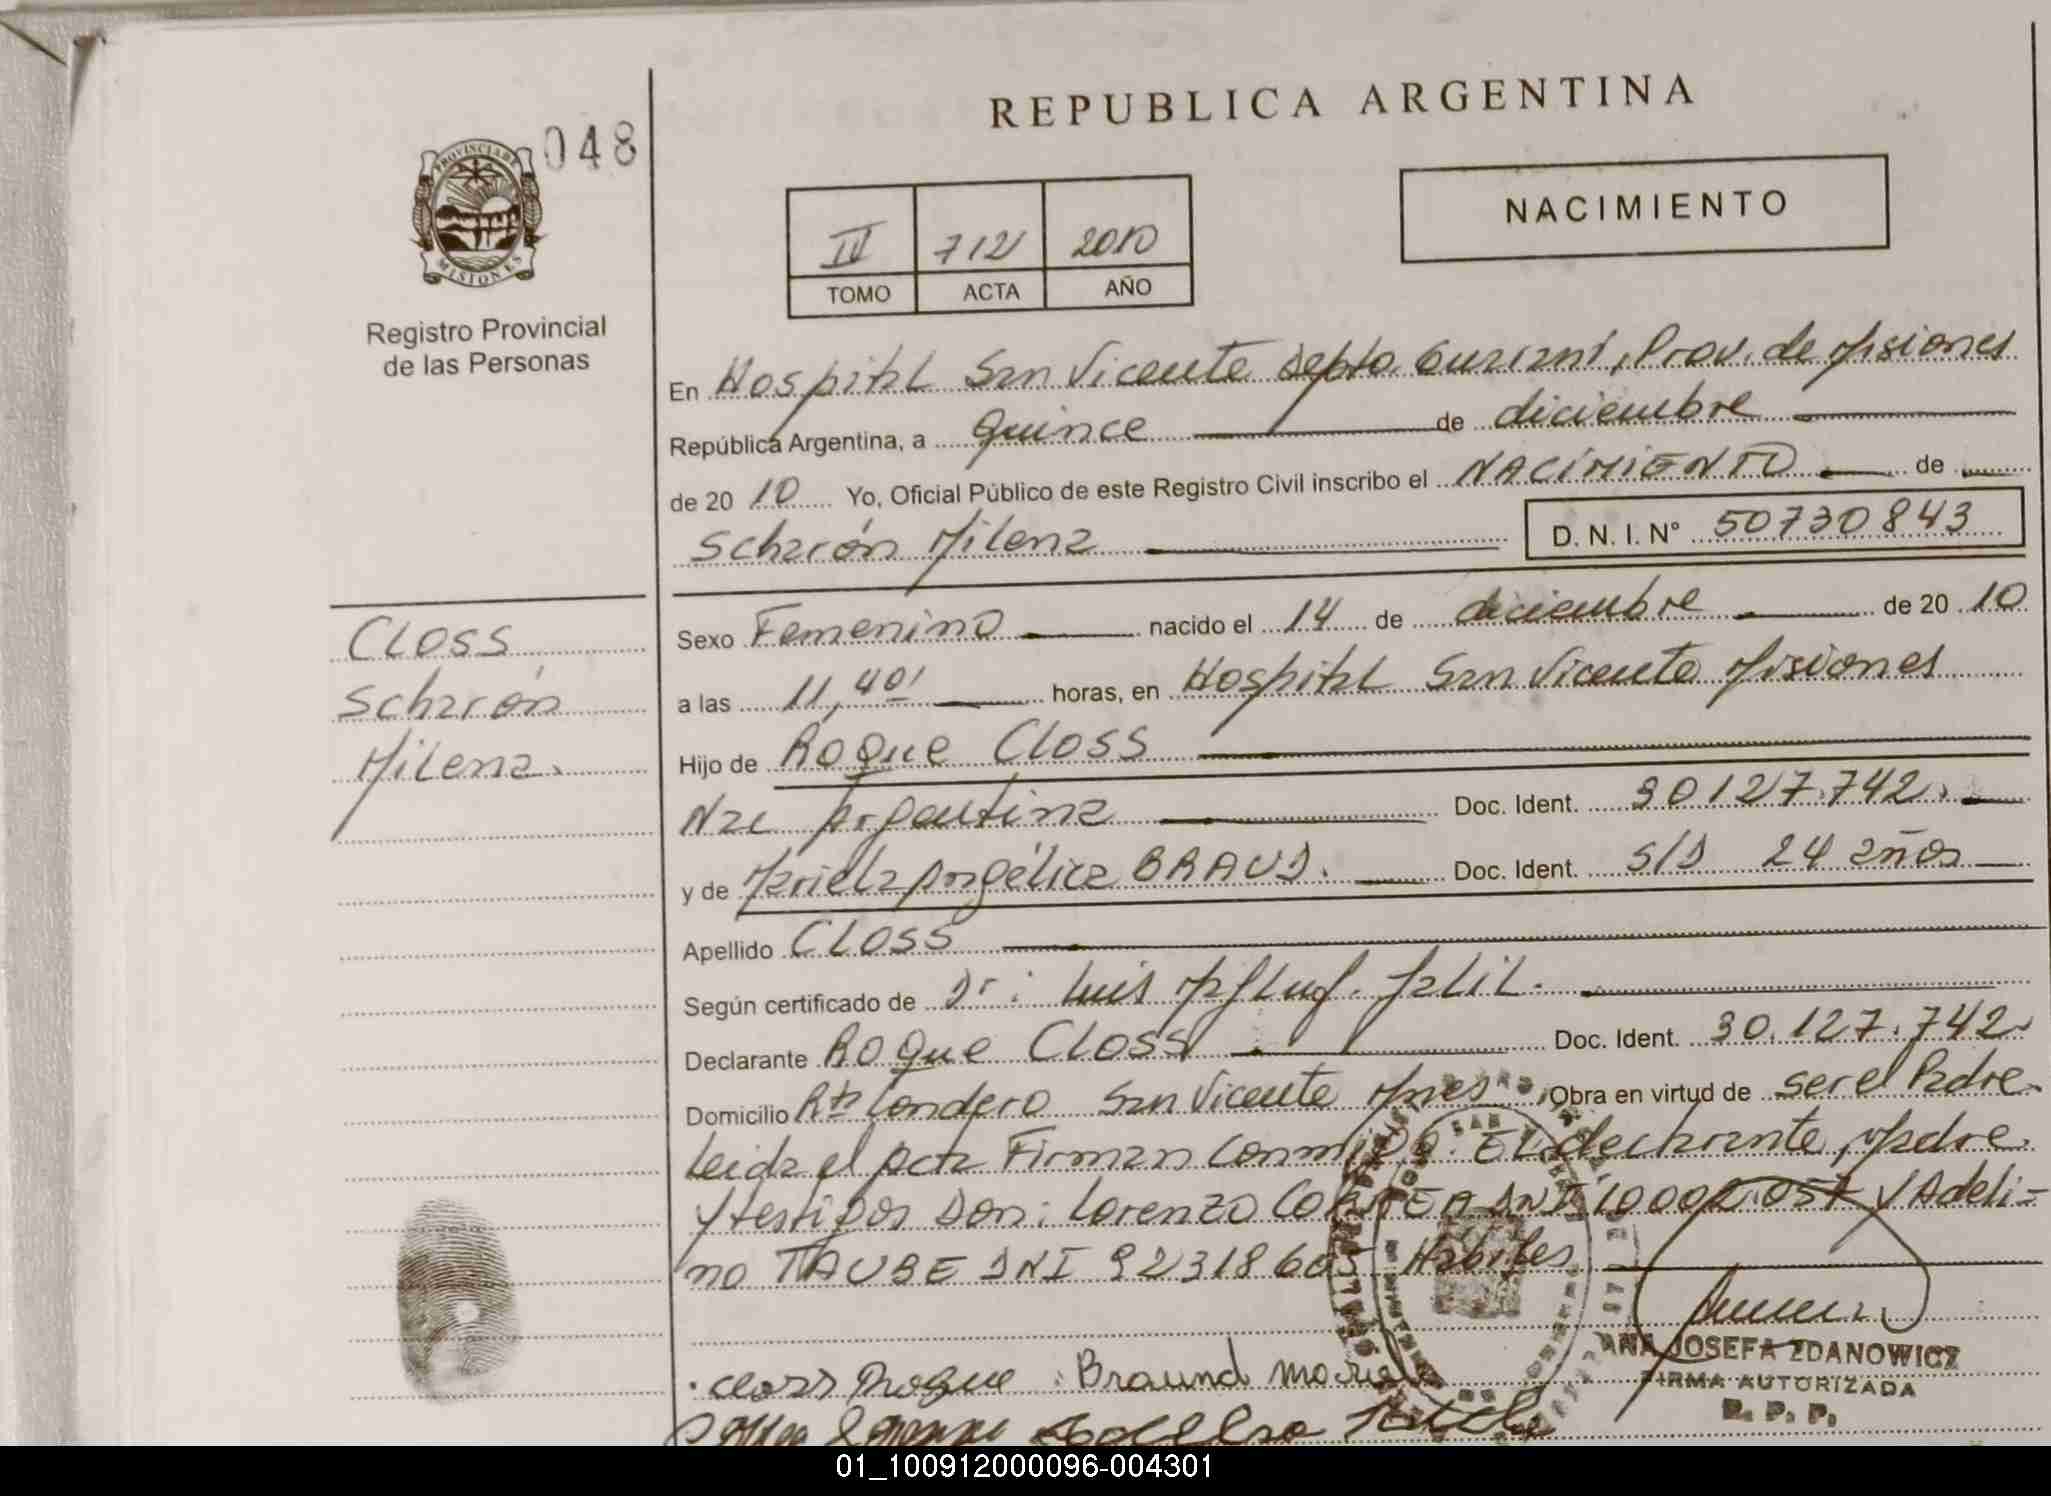 048
REPUBLICA ARGENTINA
PROVINCIA DE
MISIONES
Registro Provincial
de las Personas
NACIMIENTO
IV 712 2010
TOMO ACTA AÑO
En Hospital San Vicente Depto. Guaraní, Prov. de Misiones
República Argentina, a quince de diciembre
de 20 10 Yo, Oficial Público de este Registro Civil inscribo el NACIMIENTO de
Scharón Milena D. N. I. N° 50730843
CLOSS
Scharón
Milena.
Sexo Femenino nacido el 14 de diciembre de 20 10
a las 11,40' horas, en Hospital San Vicente Misiones
Hijo de Roque CLOSS
Nac Argentina Doc. Ident. 30127.742.
y de Mariela Angélica BRAUD. Doc. Ident. S/D 24 años
Apellido CLOSS
Según certificado de Dr: Luis
Declarante Roque CLOSS Doc. Ident. 30.127.742
Domicilio Londero San Vicente Mnes Obra en virtud de ser el Padre.
Leida el Acta Firman Conmigo. El declarante, Madre
y testigos Don: Lorenzo DNI y Adeli-
no TAUBE DNI Habiles
closs Roque Braund
ANA JOSEFA ZDANOWICZ
FIRMA AUTORIZADA
R. P. P.
01_100912000096-004301